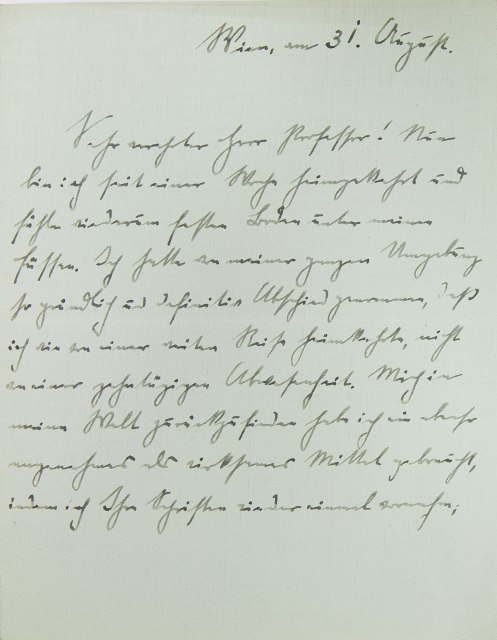 Wien, am 31. August.
Sehr verehrter Herr Professor! Nun
bin ich seit einer Woche heimgekehrt und
fühle wiederum festen Boden unter meinen
Füssen. Ich hatte von meiner ganzen Umgebung
so gründlich und definitiv Abschied genommen, daß
ich wie von einer weiten Reise heimkehrte, nicht
von einer zehntägigen Abwesenheit. Mich in
meine Welt zurückzufinden habe ich ein ebenso
angenehmes als wirksames Mittel gebraucht,
indem ich Ihre Schriften wieder einmal vornehm;